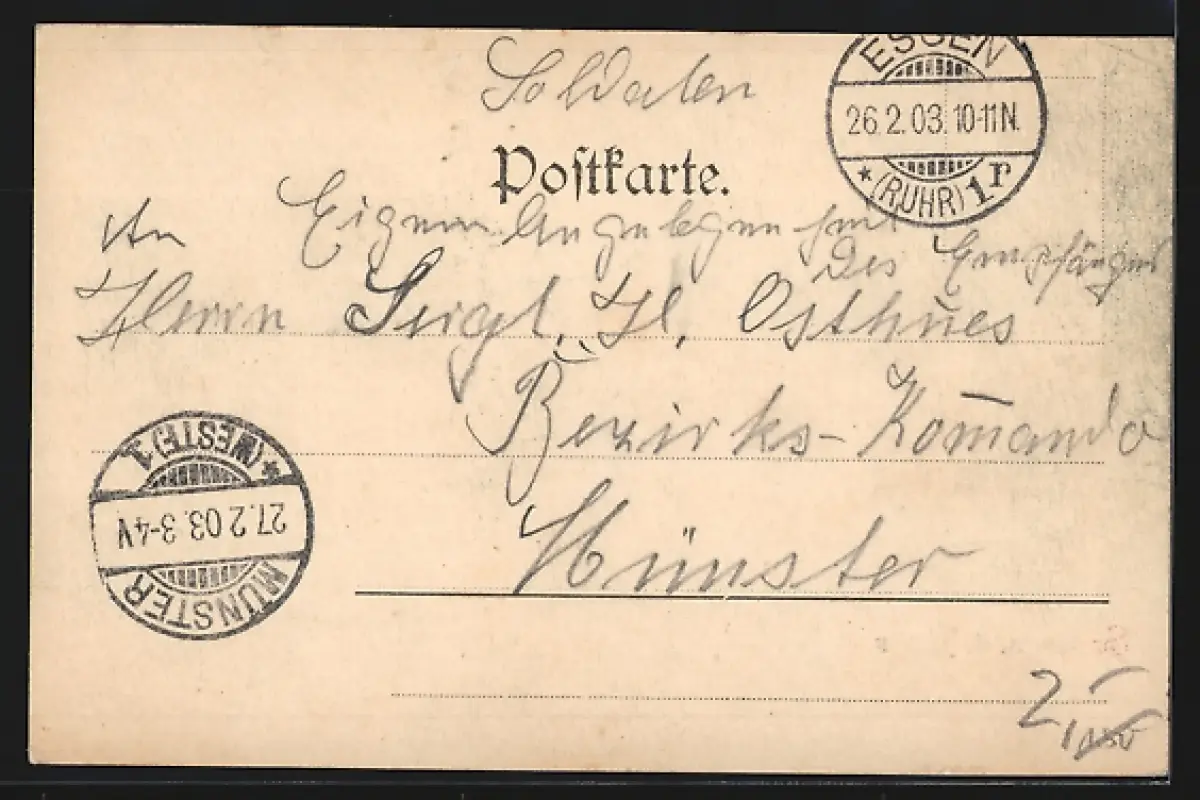 Soldaten
Postkarte.
ESSEN
26.2.03. 10-11 N.
* (RUHR) 1 r
Eigene Angelegenheit
des Empfängers
An
Herrn Sergt. H. Osthues
Bezirks-Kom̄ando
Münster
MÜNSTER
27.2.03. 3-4 V
* (WESTF.) 1
2,-